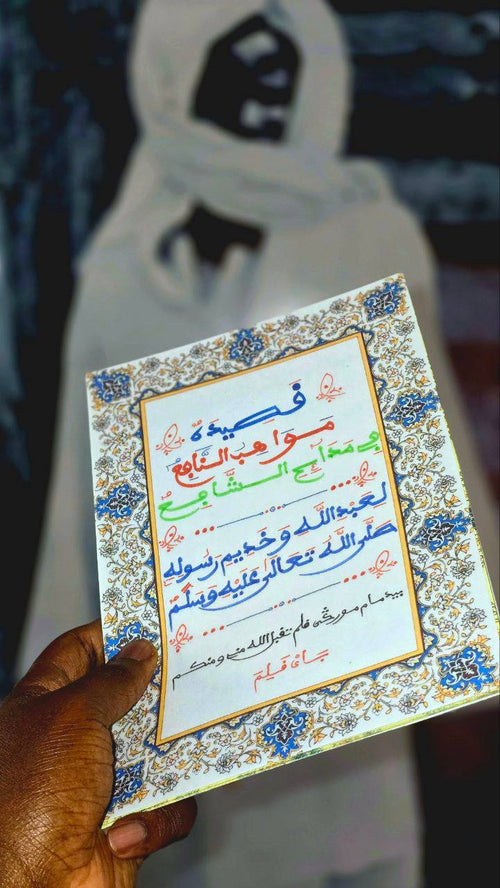 قَصِيدَةُ
مَوَاهِبُ النَّافِعُ
فِي مَدَائِحِ الشَّافِعُ
لعَبْدِ اللَّهِ وَخَدِيمِ رَسُولِهِ
صَلَّى اللَّهُ تَعَالَى عَلَيْهِ وَسَلَّمَ
بيد مام مور قلم تقبل الله منا ومنكم